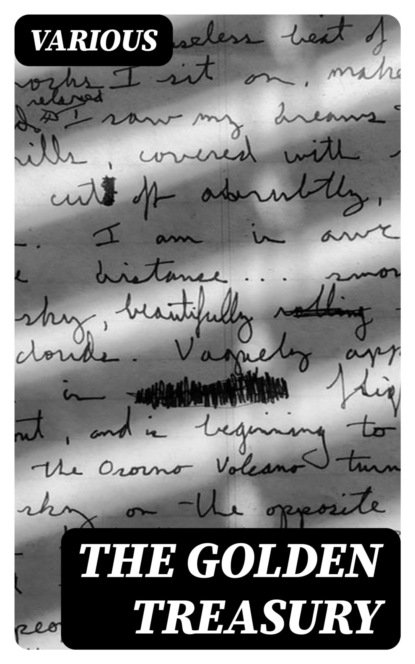 VARIOUS
useless beat of
rocks I sit on, make
relaxed
I saw my dreams
ills, covered with
cut off abruptly,
I am in awe
distance....
sky, beautifully rolling
clouds. Vaguely app
in
out, and is beginning to
the Osorno Volcano turn
sky on the opposite
THE GOLDEN
TREASURY
peo